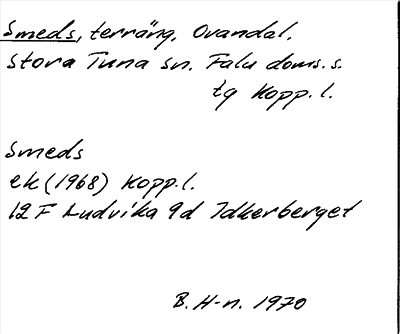 Smeds, terräng, Ovandal.
Stora Tuna sn. Falu doms. s.
tg Kopp. l.
Smeds
ek (1968) Kopp. l.
12F Ludvika 9d Idkerberget
B. H-n. 1970